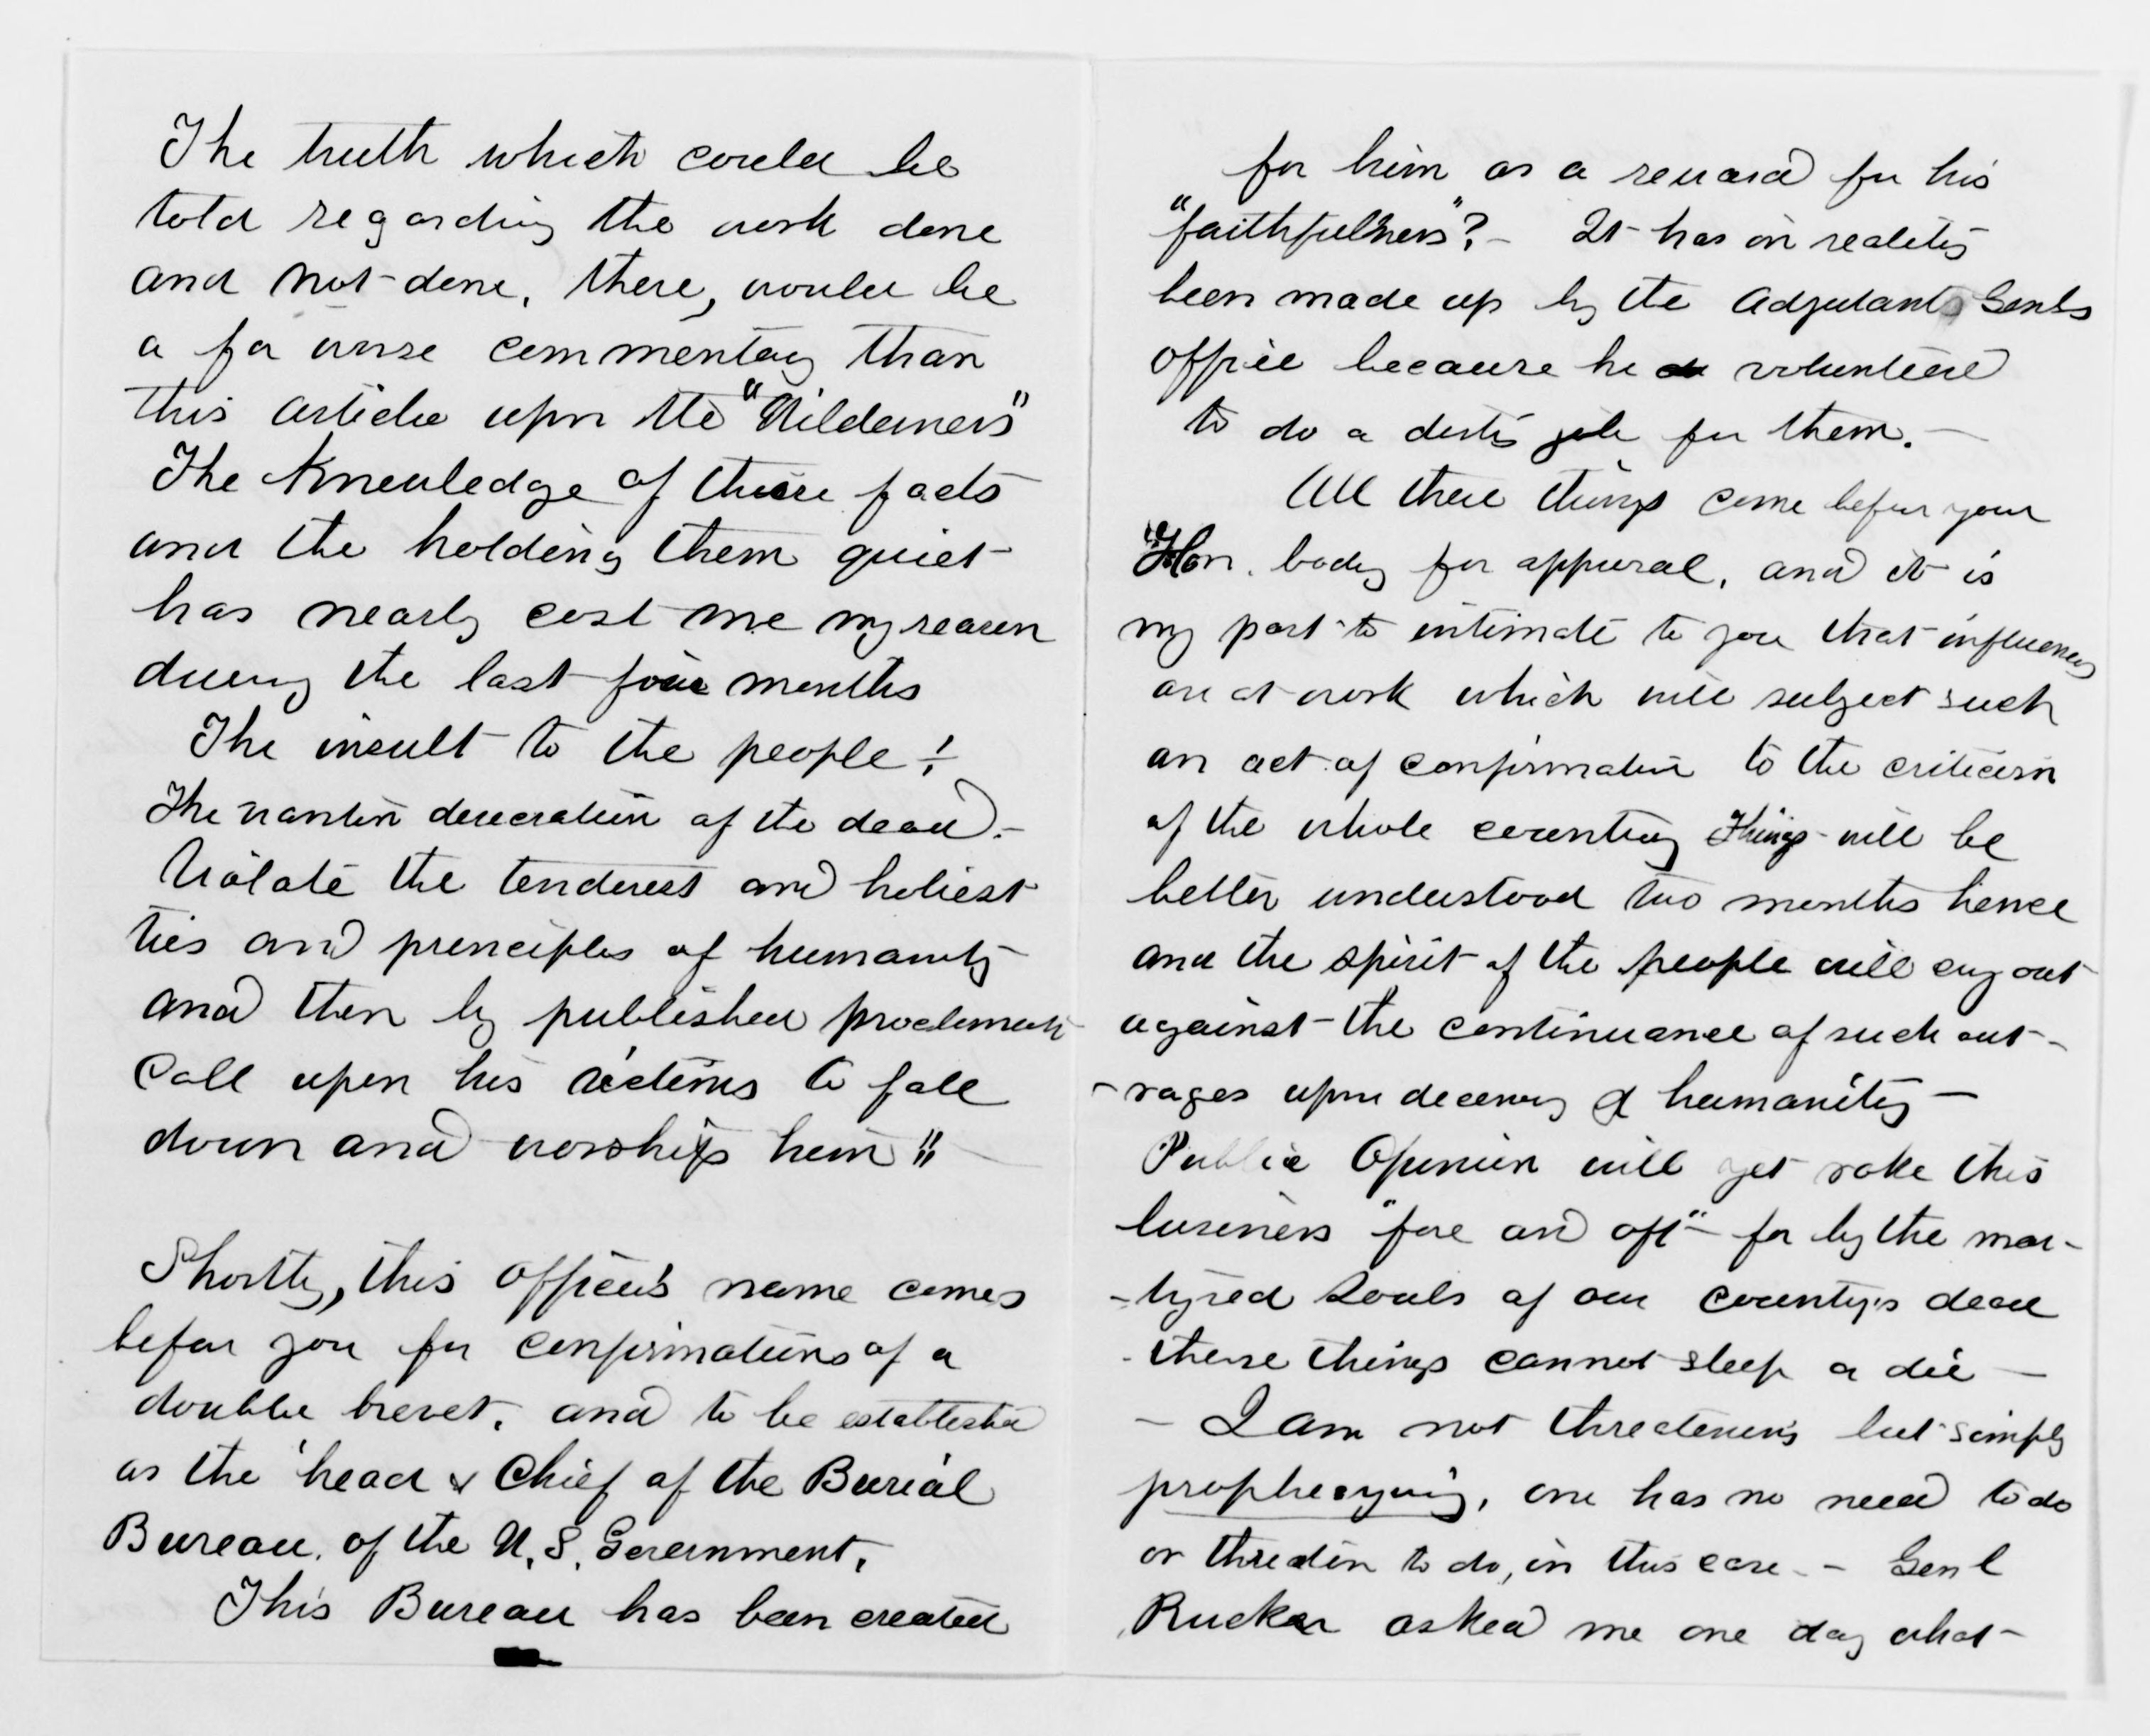 The truth which could be
told regarding the work done
and not done, there, would be
a far worse commentary than
this article upon the "Wilderness"
The knowledge of these facts
and the holding them quiet
has nearly cost me my reason
during the last four months
The insult to the people!
The wanton desecration of the dead.-
Violate the tenderest and holiest
ties and principles of humanity
and then by published proclamation
call upon his victims to fall
down and worship him!!
Shortly, this officer's name comes
before you for confirmations of a
double brevet. and to be established
as the head & Chief of the Burial
Bureau. of the U.S. Government.
This Bureau has been created
for him as a reward for his
"faithfulness"? - It has in reality
been made up by the Adjutants Genls
office because he volunteered
to do a dirty job for them. -
All these things come before your
Hon. body for approval, and it is
my part to intimate to you that influences
are at work which will subject such
an act of confirmation to the criticism
of the whole country Things will be
better understood two months hence
and the spirit of the people will cry out
against the continuance of such out-
-rages upon decency & humanity -
Public Opinion will yet rake this
business "fore and aft" - for by the mar-
-tyred souls of our country's dead
these things cannot sleep or die -
- I am not threatening but simply
prophesying, one has no need to do
or threaten to do, in this case. - Genl
Rucker asked me one day what